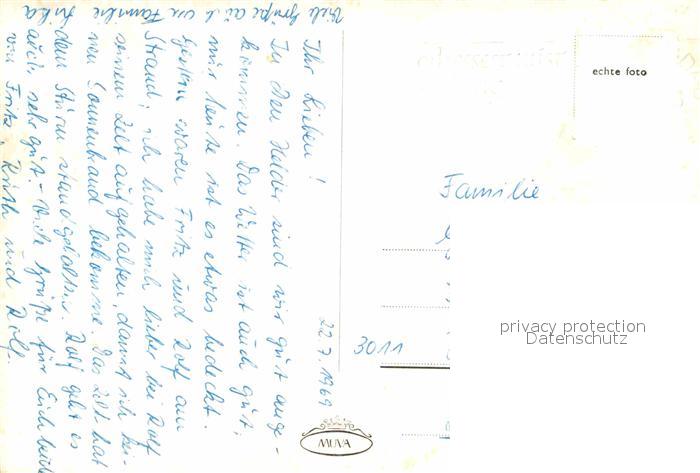 22.7.1969
Ihr Lieben!
In Den Helder sind wir gut ange-
kommen. Das Wetter ist auch gut,
nur heute ist es etwas bedeckt.
Gestern waren Fritz und Rolf am
Strand, ich habe mich lieber bei Rolf
seinem Zelt aufgehalten, damit ich kei-
nen Sonnenbrand bekomme. Das Zelt hat
dem Sturm standgehalten. Rolf geht es
auch sehr gut - Viele Grüße für Euch beide
von Fritz, Ruth und Rolf.
Viele Grüße auch an Familie
echte foto
Familie
3011
MUVA
privacy protection
Datenschutz